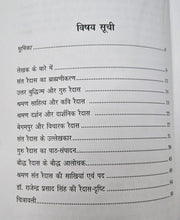 विषय सूची
भूमिका
लेखक के बारे में
संत रैदास का ब्राह्मणीकरण
उत्तर बुद्धिज्म और गुरु रैदास
श्रमण साहित्य और कवि रैदास
श्रमण दर्शन और दार्शनिक रैदास
बेगमपुर और विचारक रैदास
संत रैदास के उल्लेखकार
गुरु रैदास का पाठ-संपादन
बौद्ध रैदास के बौद्ध आलोचक
श्रमण संत रैदास की साखियां एवं पद
डॉ. राजेन्द्र प्रसाद सिंह की रैदास-दृष्टि
चित्रावली